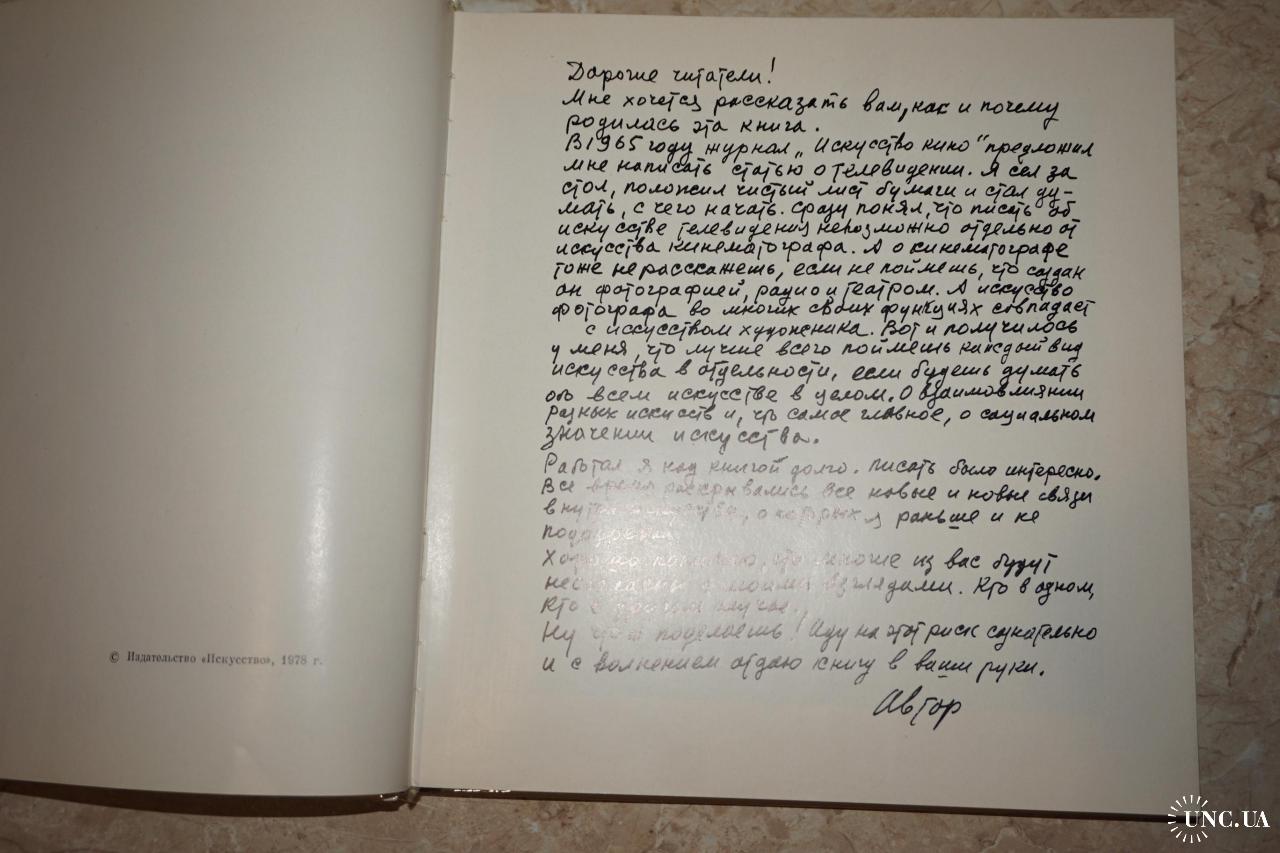 © Издательство «Искусство», 1978 г.
Дорогие читатели!
Мне хочется рассказать вам, как и почему
родилась эта книга.
В 1965 году журнал „Искусство кино" предложил
мне написать статью о телевидении. Я сел за
стол, положил чистый лист бумаги и стал ду-
мать, с чего начать. Сразу понял, что писать об
искусстве телевидения невозможно отдельно от
искусства кинематографа. А о кинематографе
тоже не расскажешь, если не поймешь, что создан
он фотографией, радио и театром. А искусство
фотографа во многих своих функциях совпадает
с искусством художника. Вот и получилось
у меня, что лучше всего поймешь каждый вид
искусства в отдельности, если будешь думать
обо всем искусстве в целом. О взаимовлиянии
разных искусств и, что самое главное, о социальном
значении искусства.
Работал я над книгой долго. Писать было интересно.
Все время раскрывались все новые и новые связи
о которых я раньше и не
Хорошо понимаю, что многие из вас будут
моими взглядами. Кто в одном,
кто в другом случае.
Ну что ж поделаешь! Иду на этот риск сознательно
и с волнением отдаю книгу в ваши руки.
Автор
UNC.UA